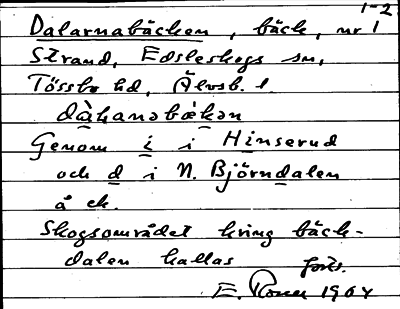 1-2
Dalarnabäcken, bäck, nr 1
Strand, Edsleskogs sn,
Tössbo hd, Älvsb. l.
Genom i i Hinserud
och d i N. Björndalen
å ek.
Skogsområdet kring bäck-
dalen kallas förs.
E. 1964